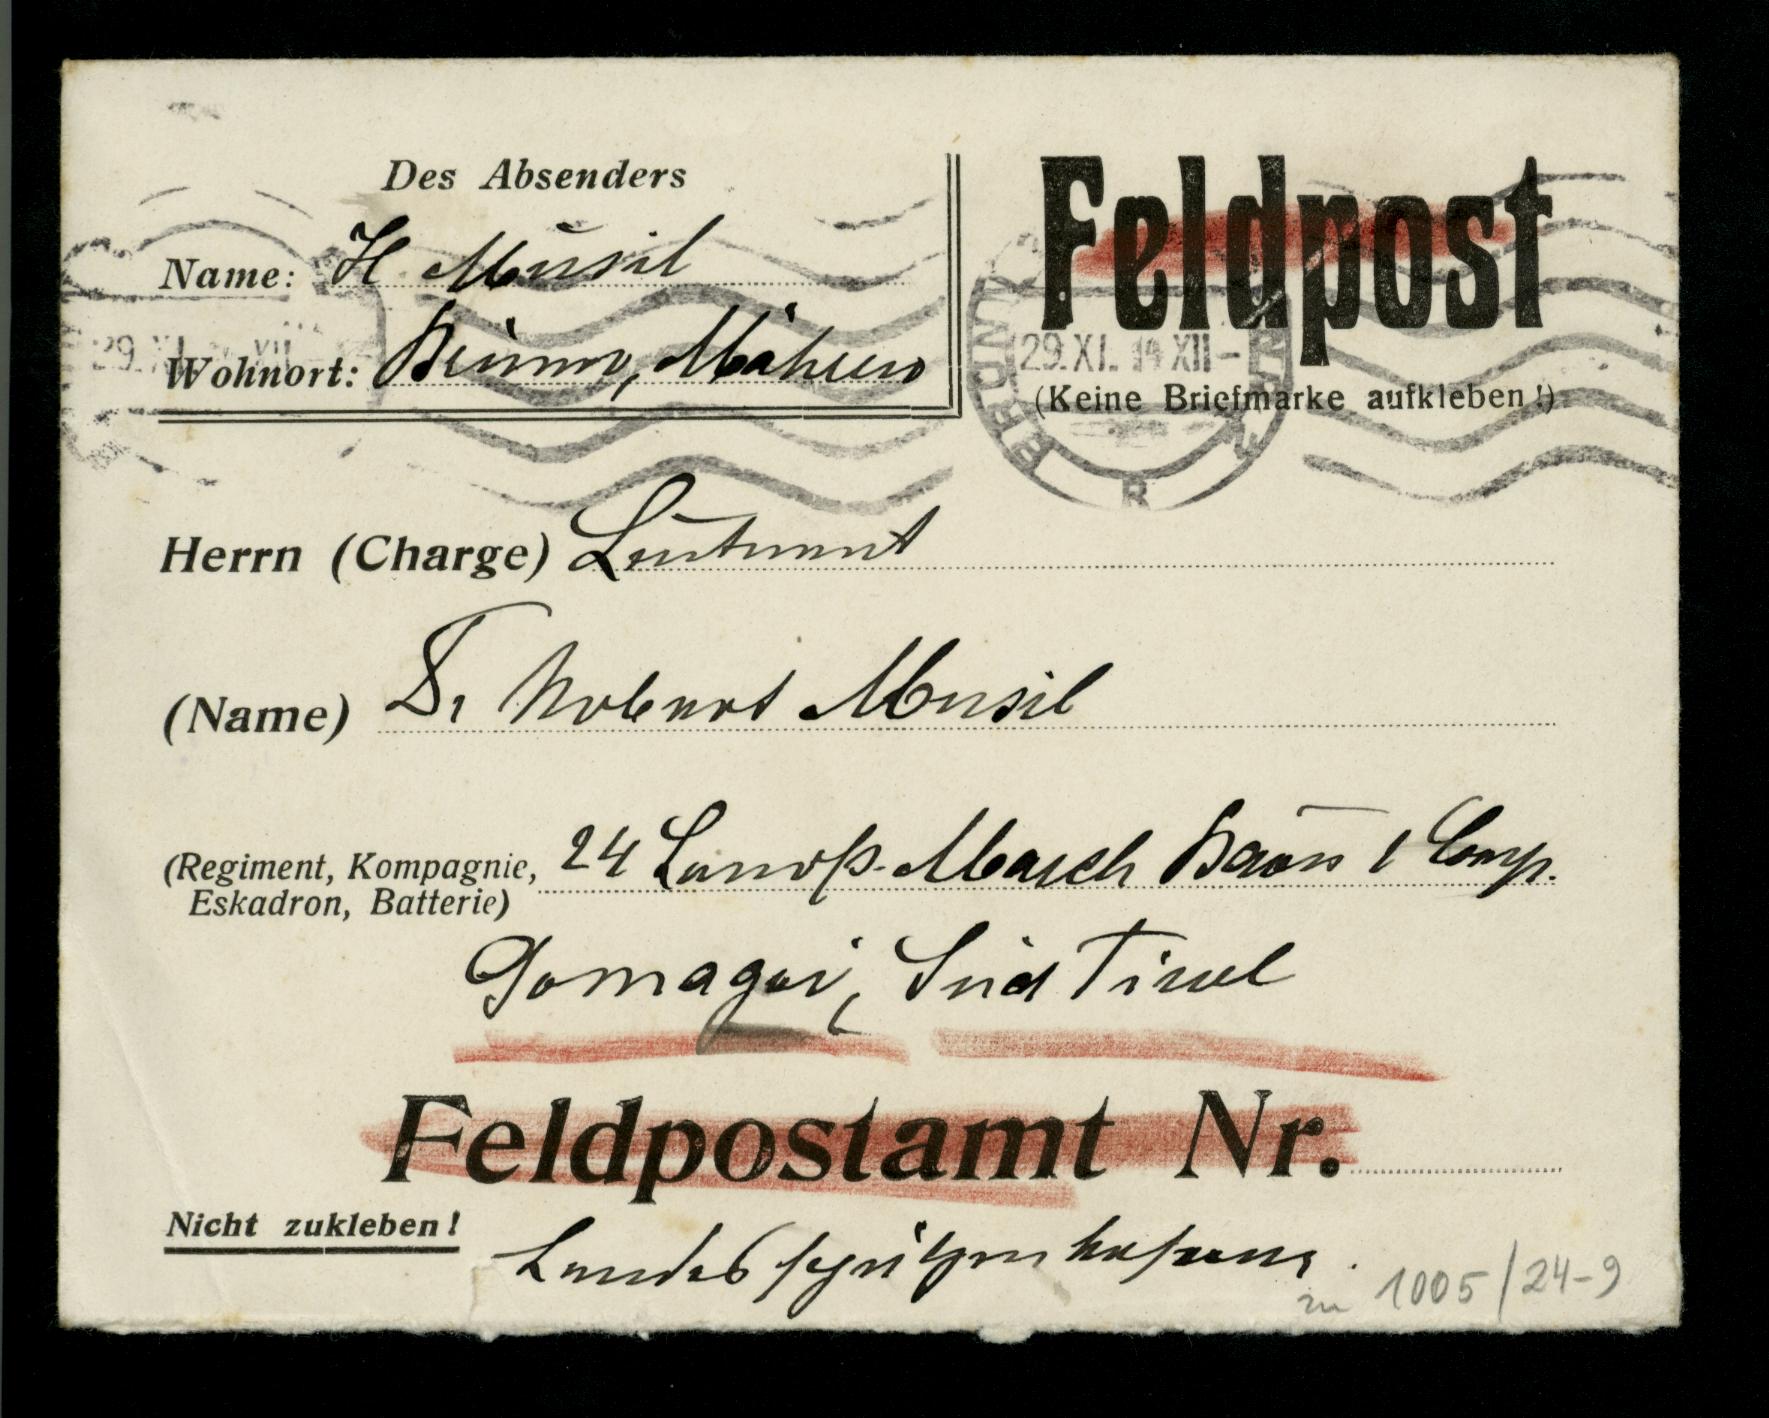 Des Absenders
Name: H Musil
Wohnort: Brünn, Mähren
Feldpost
(Keine Briefmarke aufkleben!)
BRÜNN
29.XI. 14 XII-
Herrn (Charge) Leutnant
(Name) Dr Robert Musil
(Regiment, Kompagnie, 24 Landst. Marsch Baon 1 Comp.
Eskadron, Batterie)
Gomagoi, Süd Tirol
Feldpostamt Nr.
Nicht zukleben!
Landesschützenkaserne.
zu 1005/24-9